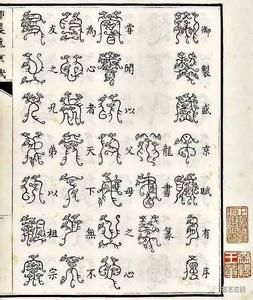 御製盛京賦有序
龍書篆
嘗聞以父母之心
為心者天下無不
友之兄弟以祖宗